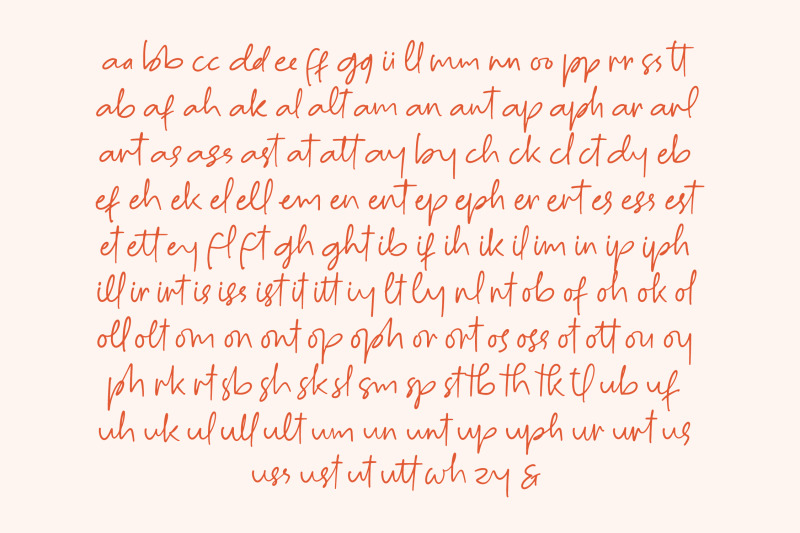 aa bb cc dd ee ff gg ii ll mm nn oo pp rr ss tt
ab af ah ak al alt am an ant ap aph ar arl
art as ass ast at att ay by ch ck cl ct dy eb
ef eh ek el ell em en ent ep eph er ert es ess est
et ett ey fl ft gh ght ib if ih ik il im in ip iph
ill ir irt is iss ist it itt iy lt ly nl nt ob of oh ok ol
oll olt om on ont op oph or ort os oss ot ott ou oy
ph rk rt sb sh sk sl sm sp st tb th tk tl ub uf
uh uk ul ull ult um un unt up uph ur urt us
uss ust ut utt wh zy &